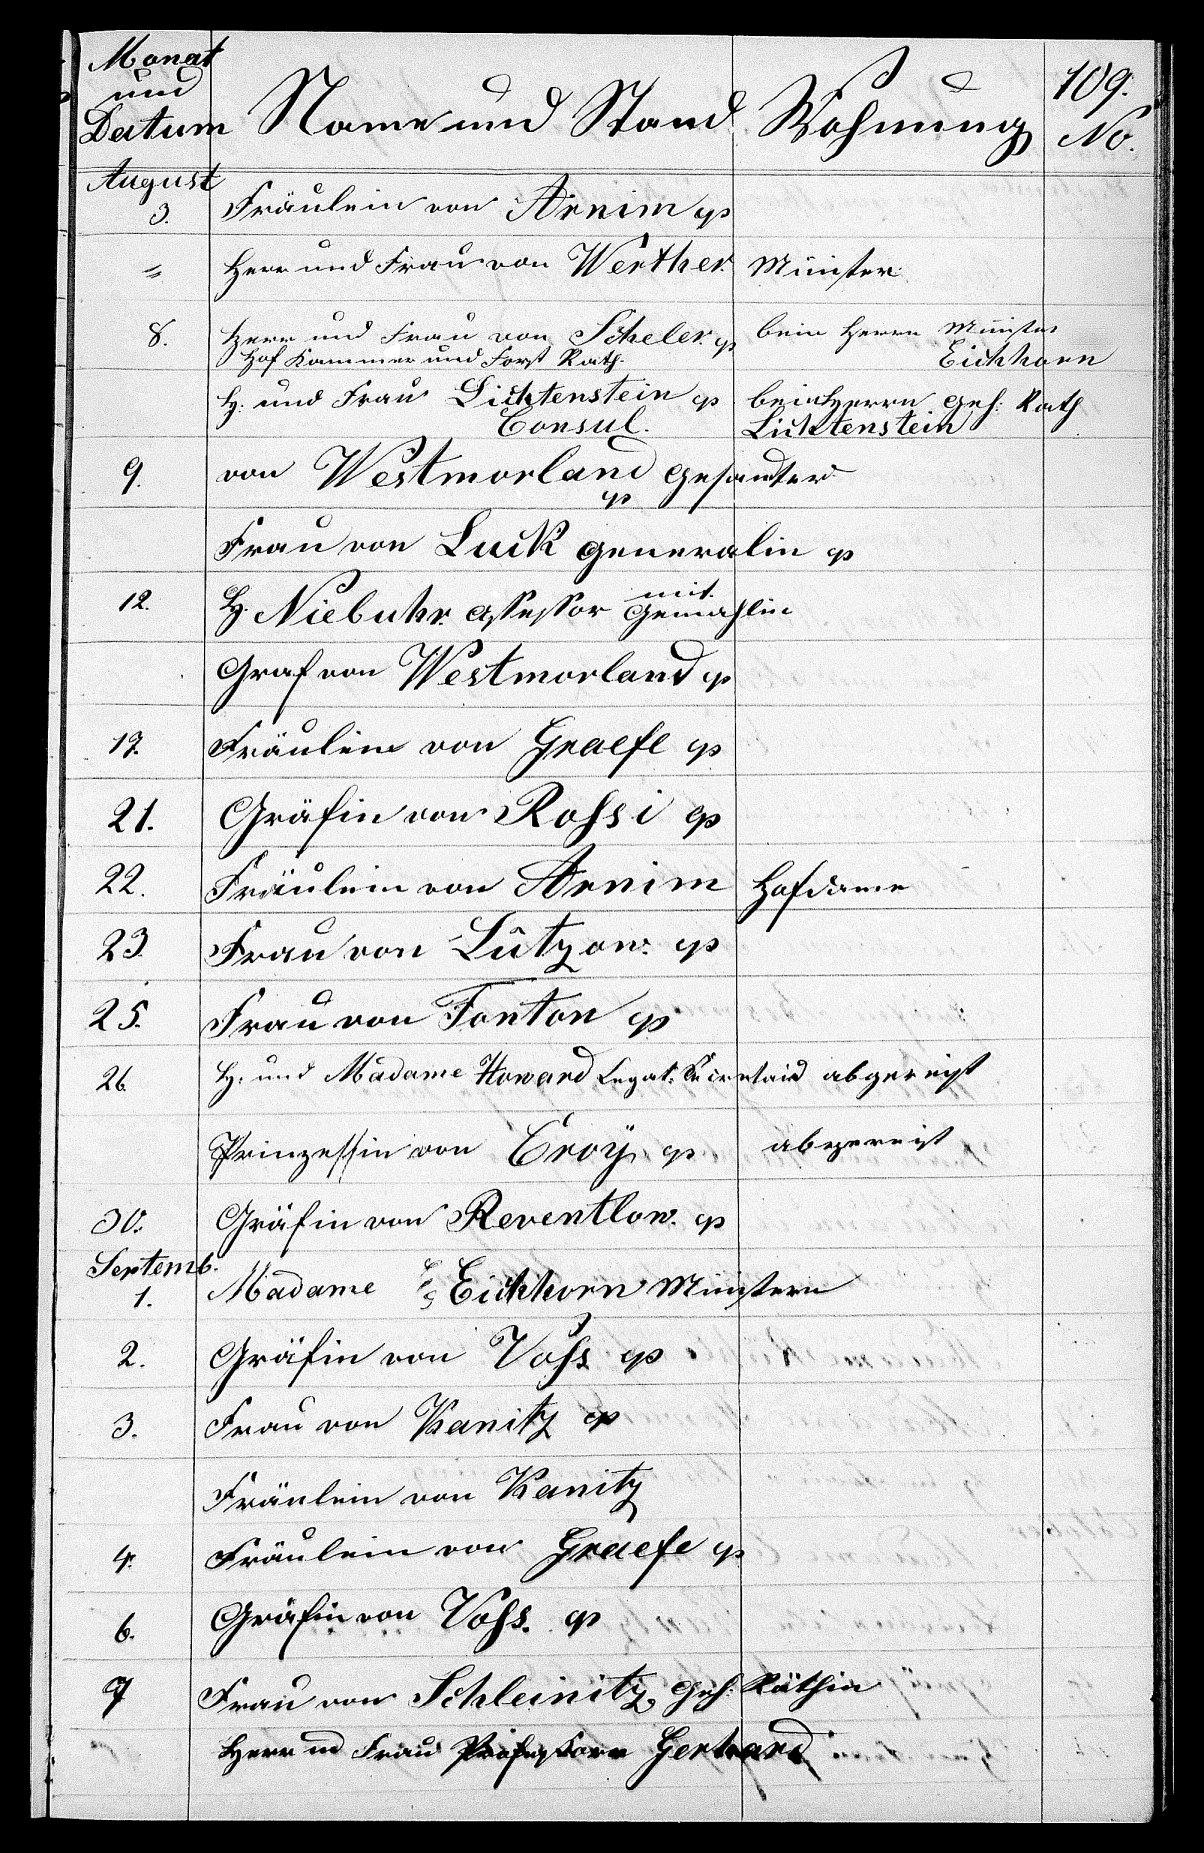 109.
Monat und Datum Name und Stand Wohnung No.
August
3. Fräulein von Arnim
" Herr und Frau von Werther. Minister
8. Herr und Frau von Scheler. beim Herrn Minister
Hof Kammer und Forst Rath. Eichhorn
H. und Frau Lichtenstein beim Herrn Geh: Rath
Consul. Lichtenstein
9. von Westmorland Gesandter
Frau von Luck Generalin
12. H. Niebuhr Assessor mit Gemahlin
Graf von Westmorland
19. Fräulein von Graefe
21. Gräfin von Rossi
22. Fräulein von Arnim Hofdame
23. Frau von Lützow.
25. Frau von Fonton
26. H. und Madame Howard Legat: Secretair abgereist
Prinzessin von Croÿ abgereist
30. Gräfin von Reventlow.
Septemb.
1. Madame Eichhorn Ministern
2. Gräfin von Voss
3. Frau von Kanitz
Fräulein von Kanitz
4. Fräulein von Graefe
6. Gräfin von Voss.
7 Frau von Schleinitz, Geh: Räthin
Herr und Frau Professorn Gerhard